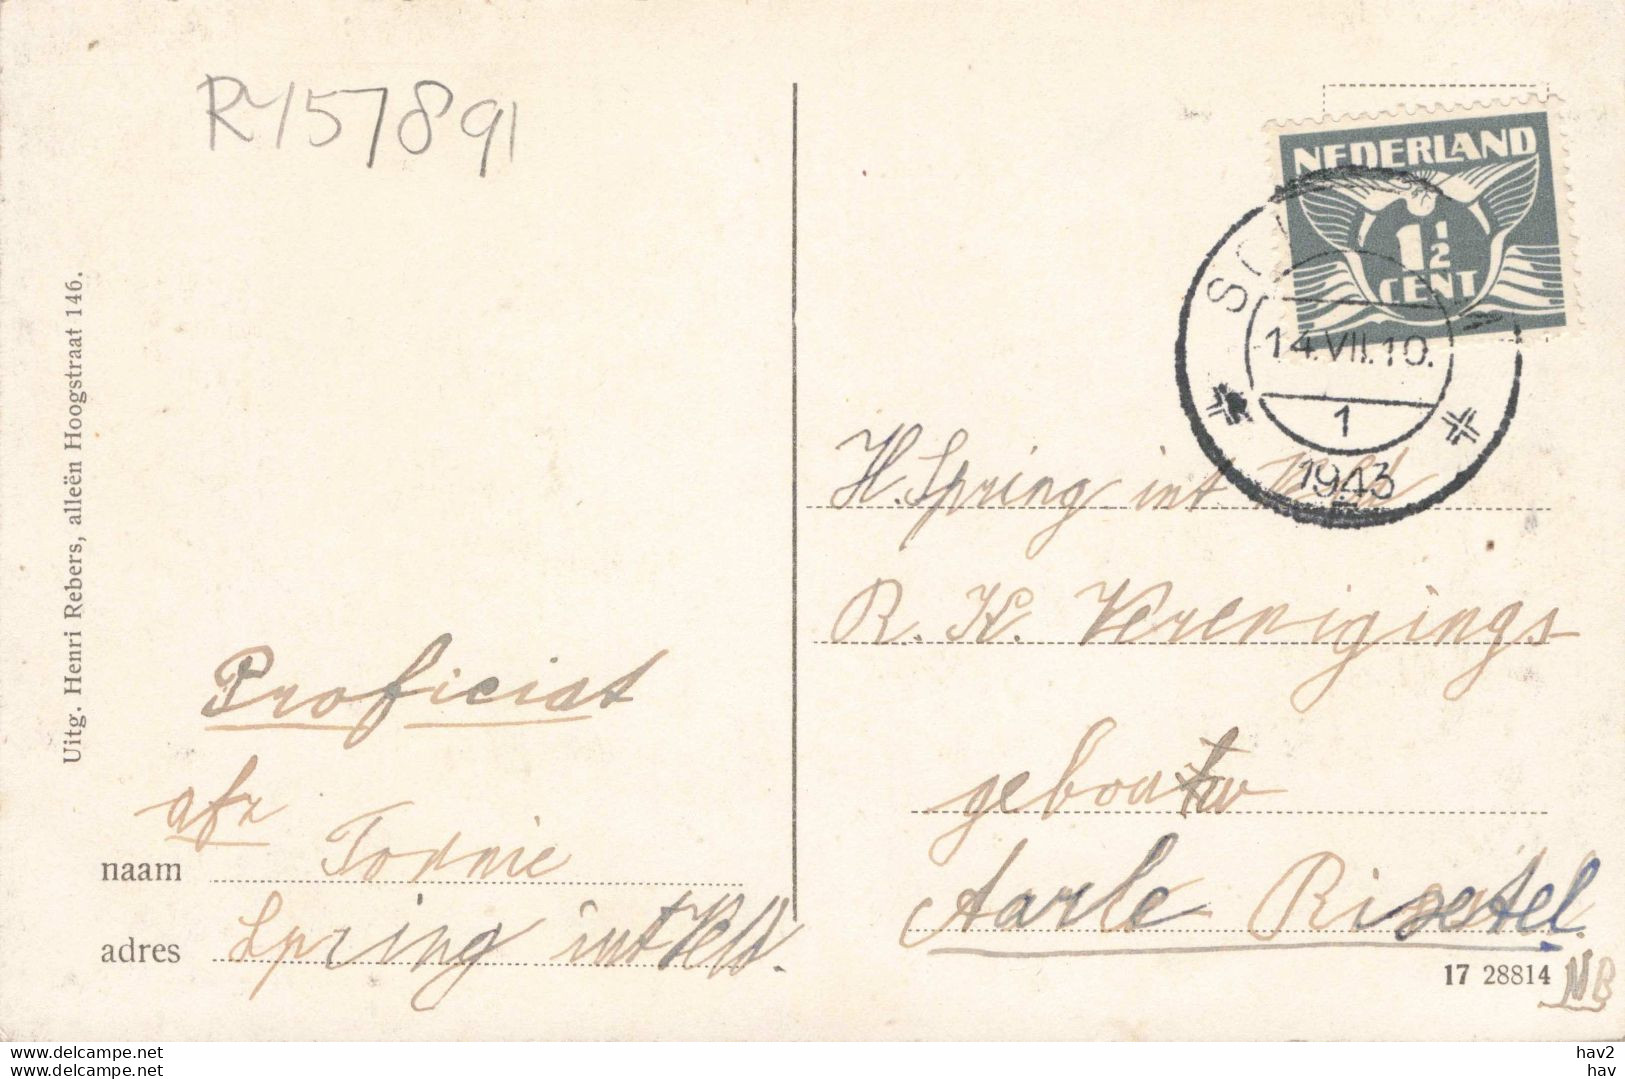 R4157891
Uitg. Henri Rebers, alleën Hoogstraat 146.
NEDERLAND
1 1/2
CENT
14.VII.10.
1
1943
H. Spring int Veld
R. K. Verenigings
gebouw
Aarle Rixtel.
Proficiat
afz
naam Tonnie
adres Spring int Veld.
17 28814
NB
www.delcampe.net
www.delcampe.net
hav2
hav